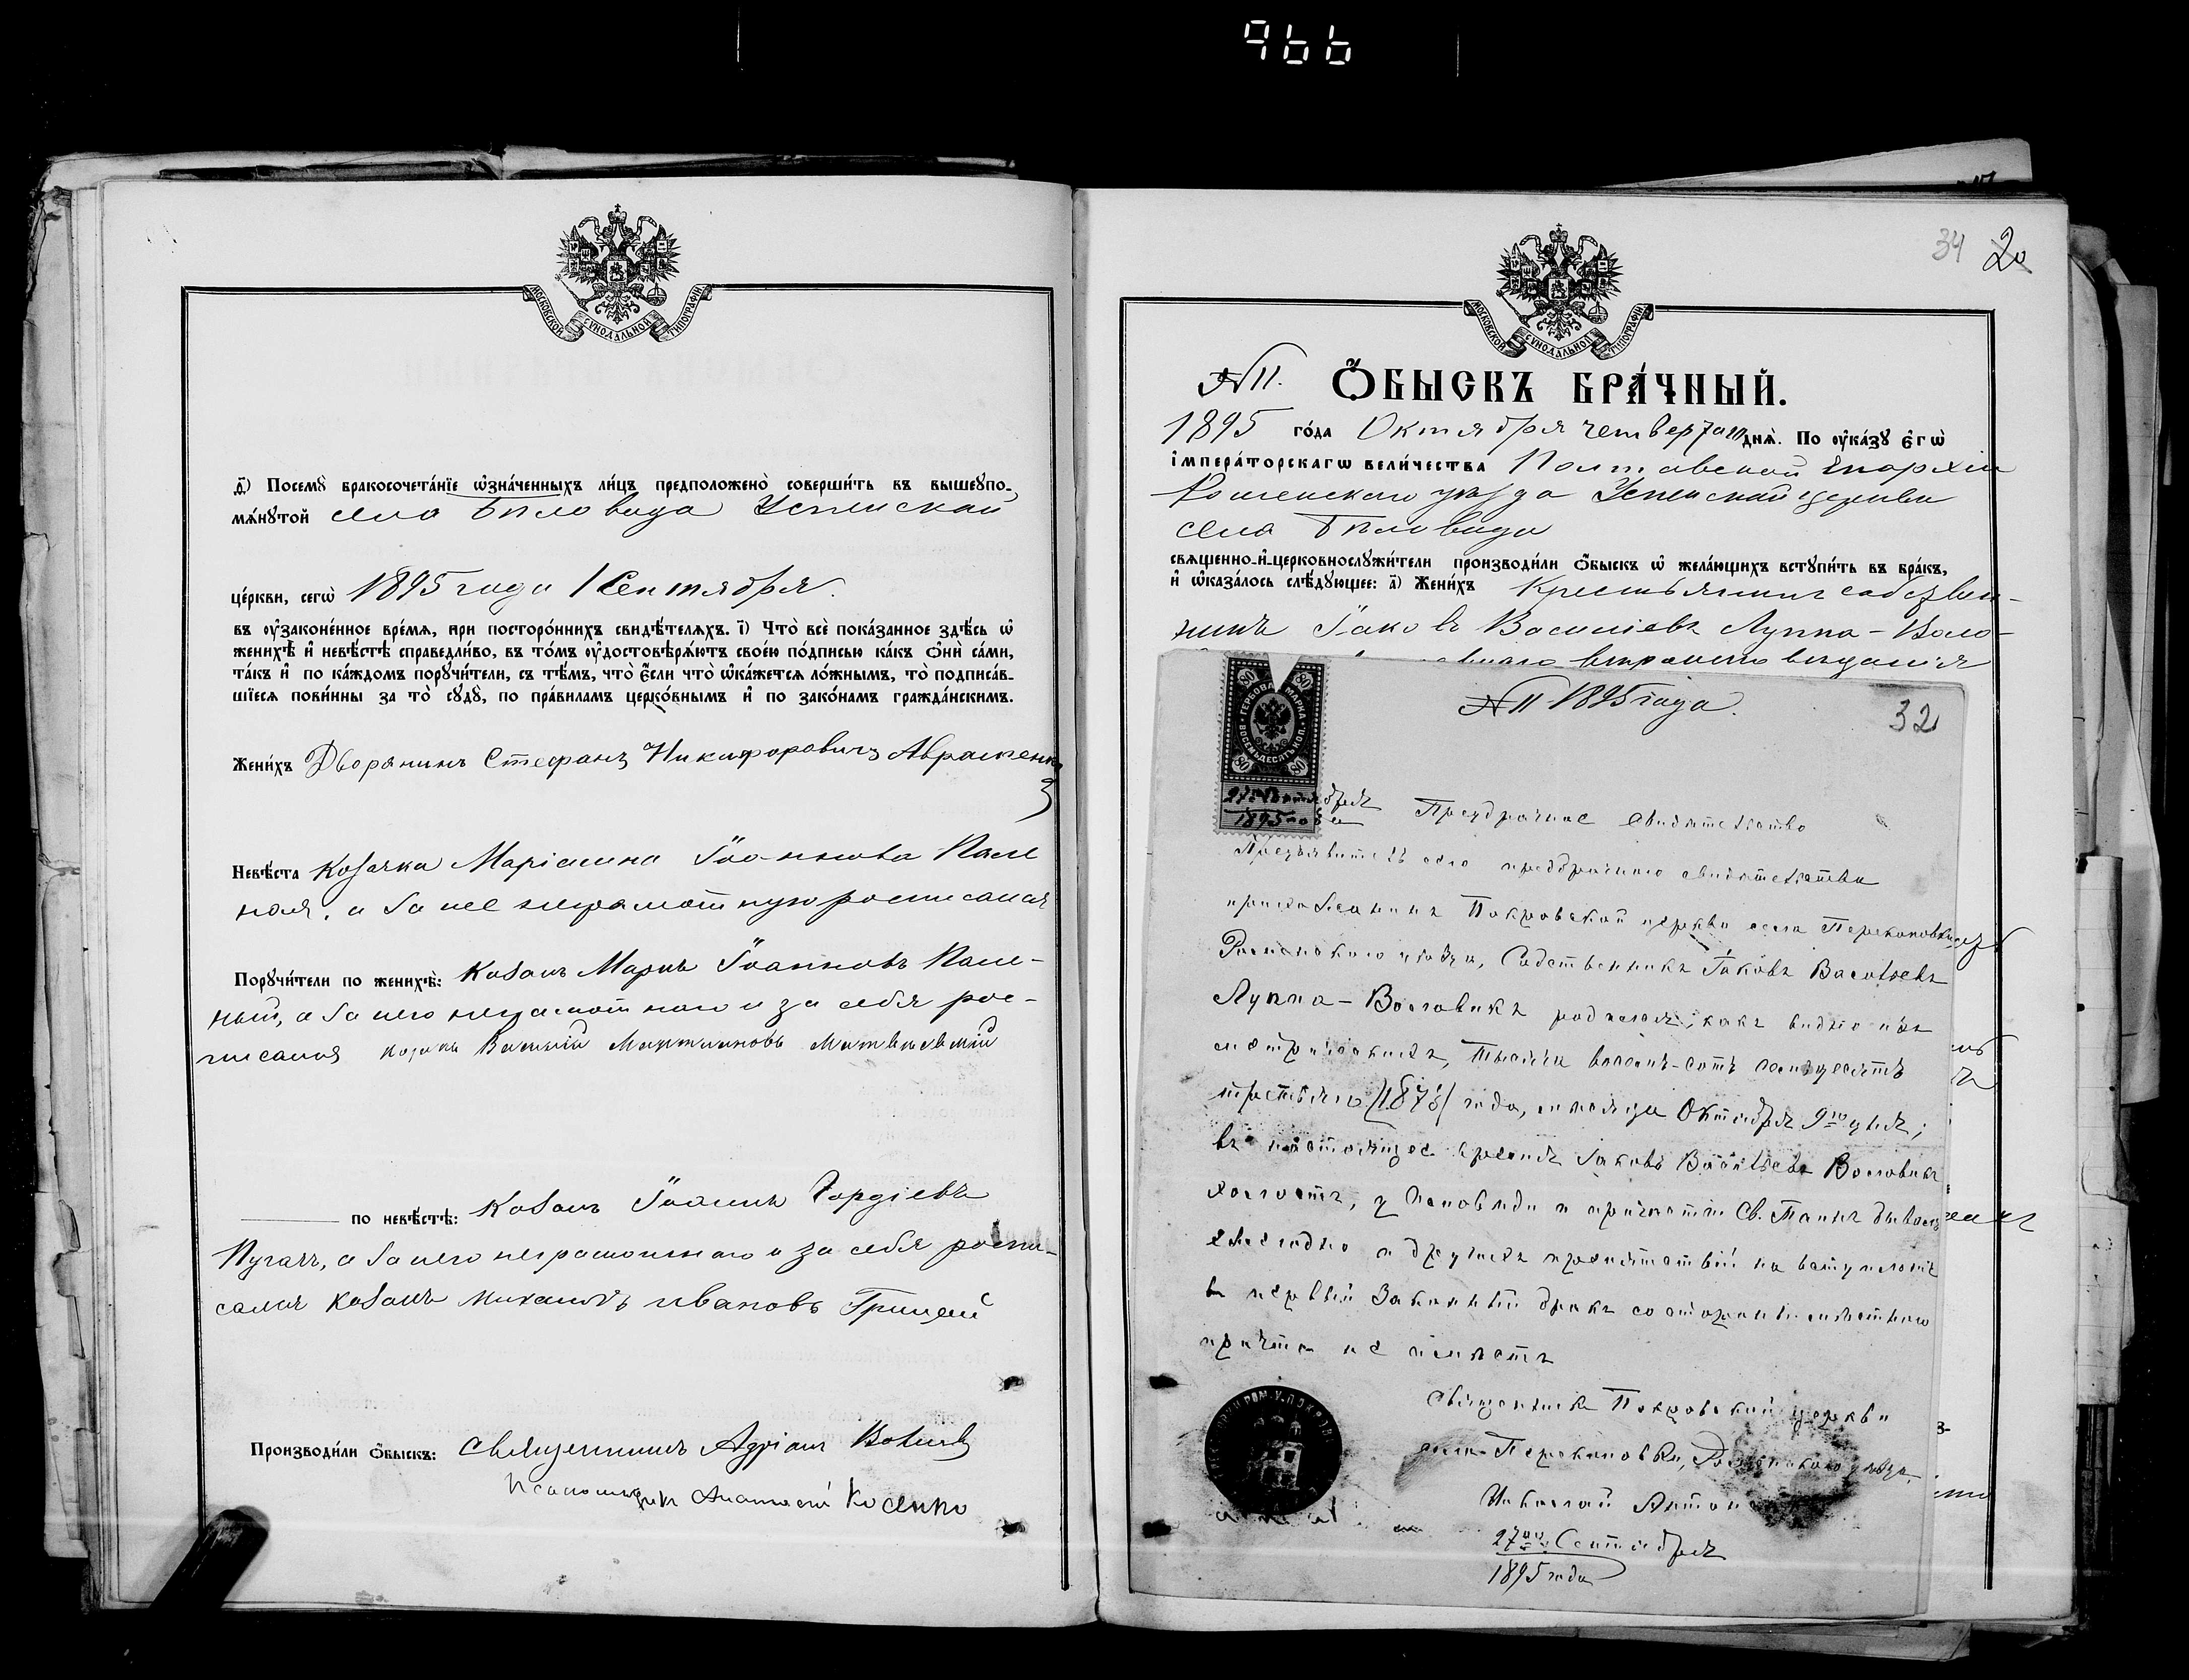 966
МОСКОВСКОЙ СѴНОДАЛЬНОЙ ТИПОГРАФІИ
Ѳ҃) Посемꙋ̀ бракосочета́нїе ѡ҆зна́ченныхъ ли́цъ предположено̀ соверши́ть въ вышеꙋпо-
мѧ́нꙋтой села Бѣловода Успенской
це́ркви, сегѡ̀ 1895 года 1 Сентября.
въ ᲂу҆законе́нное вре́мѧ, при посторо́ннихъ свидѣ́телѧхъ. і҃) Что̀ всѐ пока́занное здѣ́сь ѡ҆
женихѣ̀ и҆ невѣ́стѣ справедли́во, въ то́мъ ᲂу҆достовѣрѧ́ютъ свое́ю по́дписью ка́къ ѻ҆нѝ са́ми,
та́къ и҆ по ка́ждомъ порꙋчи́тели, съ тѣ́мъ, что̀ є҆́сли что̀ ѡ҆ка́жется ло́жнымъ, то̀ подписа́в-
шїесѧ пови́нны за то̀ сꙋдꙋ̀, по пра́виламъ церко́внымъ и҆ по зако́намъ гражда́нскимъ.
Жени́хъ Дворянинъ Стефанъ Никифоровичъ Авраменко
Невѣ́ста Козачка Маріанна Іоаннова Пале
ная, а за нее неграмотную росписался
Порꙋчи́тели по женихѣ̀: Козакъ Маркъ Іоанновъ Пале-
ный, а за него неграмотнаго и за себя рос-
писался козакъ Василій Мартиновъ Матвіевскій
по невѣ́стѣ: Козакъ Іоаннъ Гордіевъ
Пугачъ, а за него неграмотнаго и за себя роспи-
сался козакъ Михаилъ Ивановъ Грицай
Производи́ли ѻ҆́быскъ: Священникъ Адріанъ
Псаломщикъ Анатолій Косенко
34 20
МОСКОВСКОЙ СѴНОДАЛЬНОЙ ТИПОГРАФІИ
№ 11. Ѻ҆́БЫСКЪ БРА́ЧНЫЙ.
1895 го́да Октября четвертаго днѧ̀. По ᲂу҆ка́зꙋ є҆гѡ̀
і҆мпера́торскагѡ вели́чества Полтавской Епархіи
Роменскаго уѣзда Успенской церкви
села Бѣловода
свѧще́нно-и҆-церковнослꙋжи́тели производи́ли ѻ҆́быскъ ѡ҆ жела́ющихъ встꙋпи́ть въ бра́къ,
и҆ ѡ҆каза́лось слѣ́дꙋющее: а҃) Жени́хъ Крестьянинъ собствен-
никъ Іаковъ Василіевъ Луппа-Воло-
вѣроисповѣданія
№ 11 1895 года.
32
ГЕРБОВАЯ МАРКА ВОСЕМЬДЕСЯТЪ КОП. 80 80 80 80
27 Сентября
1895 года
Предбрачное свидѣтельство
Предъявитель сего предбрачнаго свидѣтельства
прихожанинъ Покровской церкви села Перекоповки
Роменскаго уѣзда, Собственникъ Іаковъ Васильевъ
Луппа-Воловикъ родился, какъ видно изъ
метрическихъ, тысяча восемь-сотъ семьдесятъ
третьяго /1873/ года, мѣсяца Октября 9го дня;
въ настоящее время Іаковъ Васильевъ Воловикъ
холостъ, у исповѣди и причастія Св. Таинъ бывалъ
ежегодно и другихъ препятствій на вступленіе
въ первый законный бракъ со стороны мѣстнаго
причта не имѣетъ
Священникъ Покровской церкви
села Перекоповки, Роменскаго уѣзда,
Николай
27го Сентября
1895 года